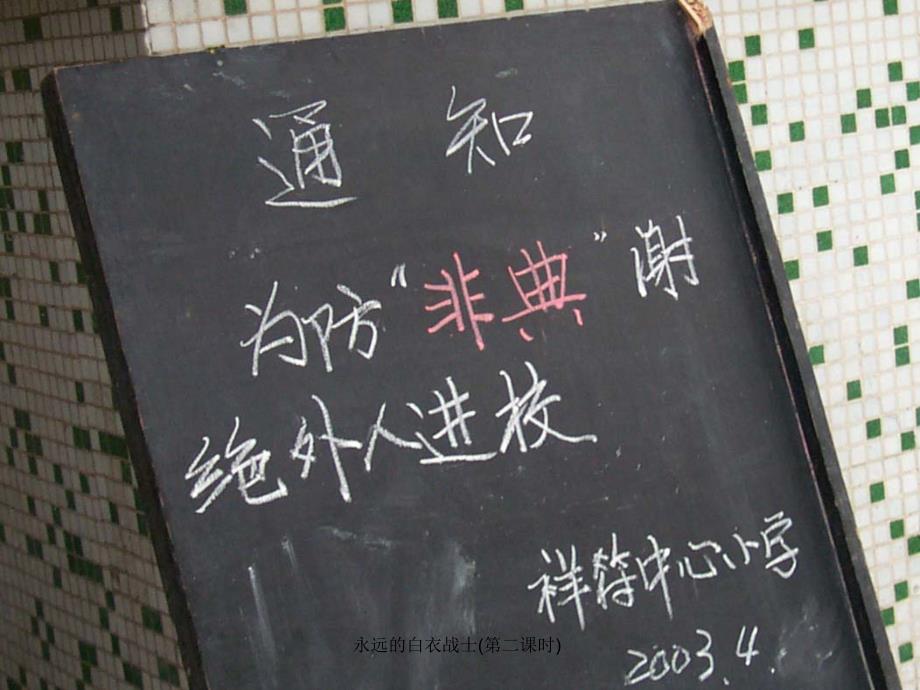 通 知
为防“非典”谢
绝外人进校
祥符中心小学
永远的白衣战士(第二课时)
2003.4.